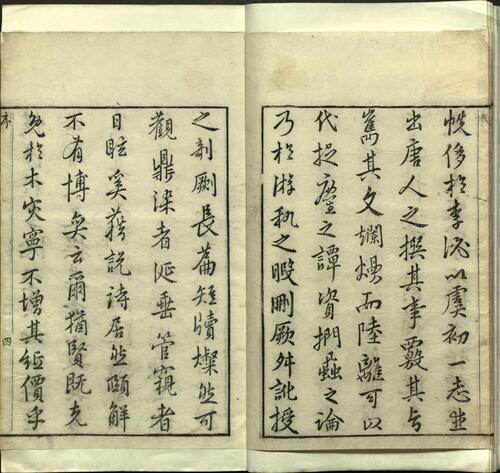 帙侈於李氾以虞初一志並
出唐人之撰其事覈其旨
雋其文爛熳而陸離可以
代捉麈之譚資捫蝨之論
乃於游執之暇刪厥舛訛授
之剞劂長篇短牘燦然可
觀鼎染者涎垂管窺者
目眩奚藉說詩居然頤解
不有博奕云爾猶賢既免
免於木灾寧不增其紙價乎
序 四